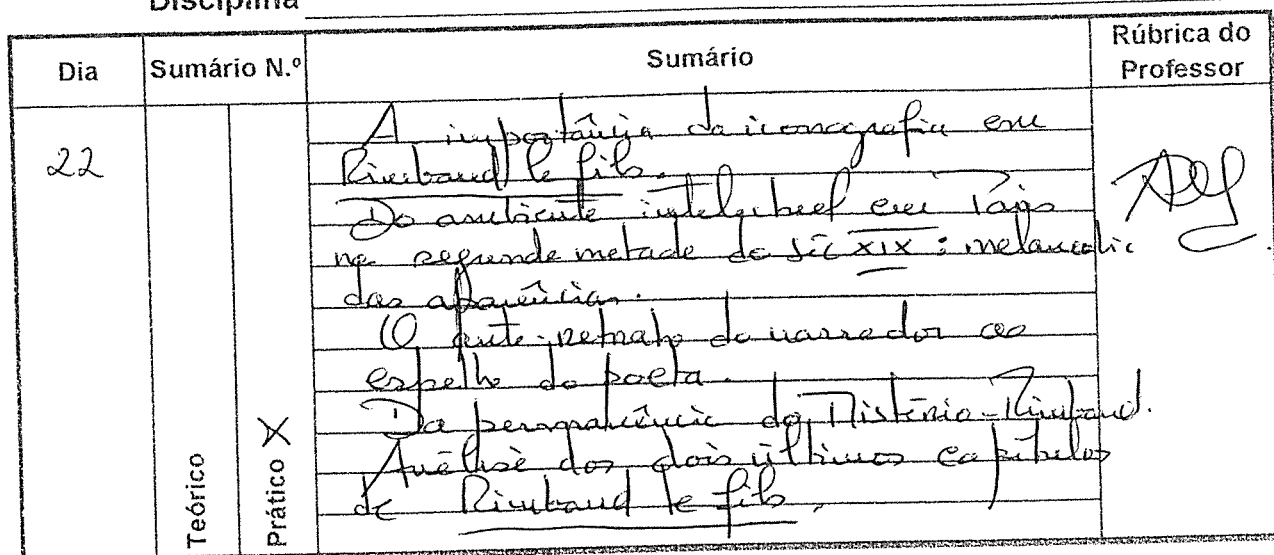 Disciplina
Dia
Sumário N.º
Sumário
Rúbrica do
Professor
22
A importância da iconografia em
Rimbaud le fils.
Do ambiente intelectual em Paris
na segunda metade do séc XIX : melancolia
das aparências.
O auto-retrato do narrador ao
espelho do poeta.
Da permanência do Mistério-Rimbaud.
Análise dos dois últimos capítulos
de Rimbaud le fils.
Teórico
Prático X